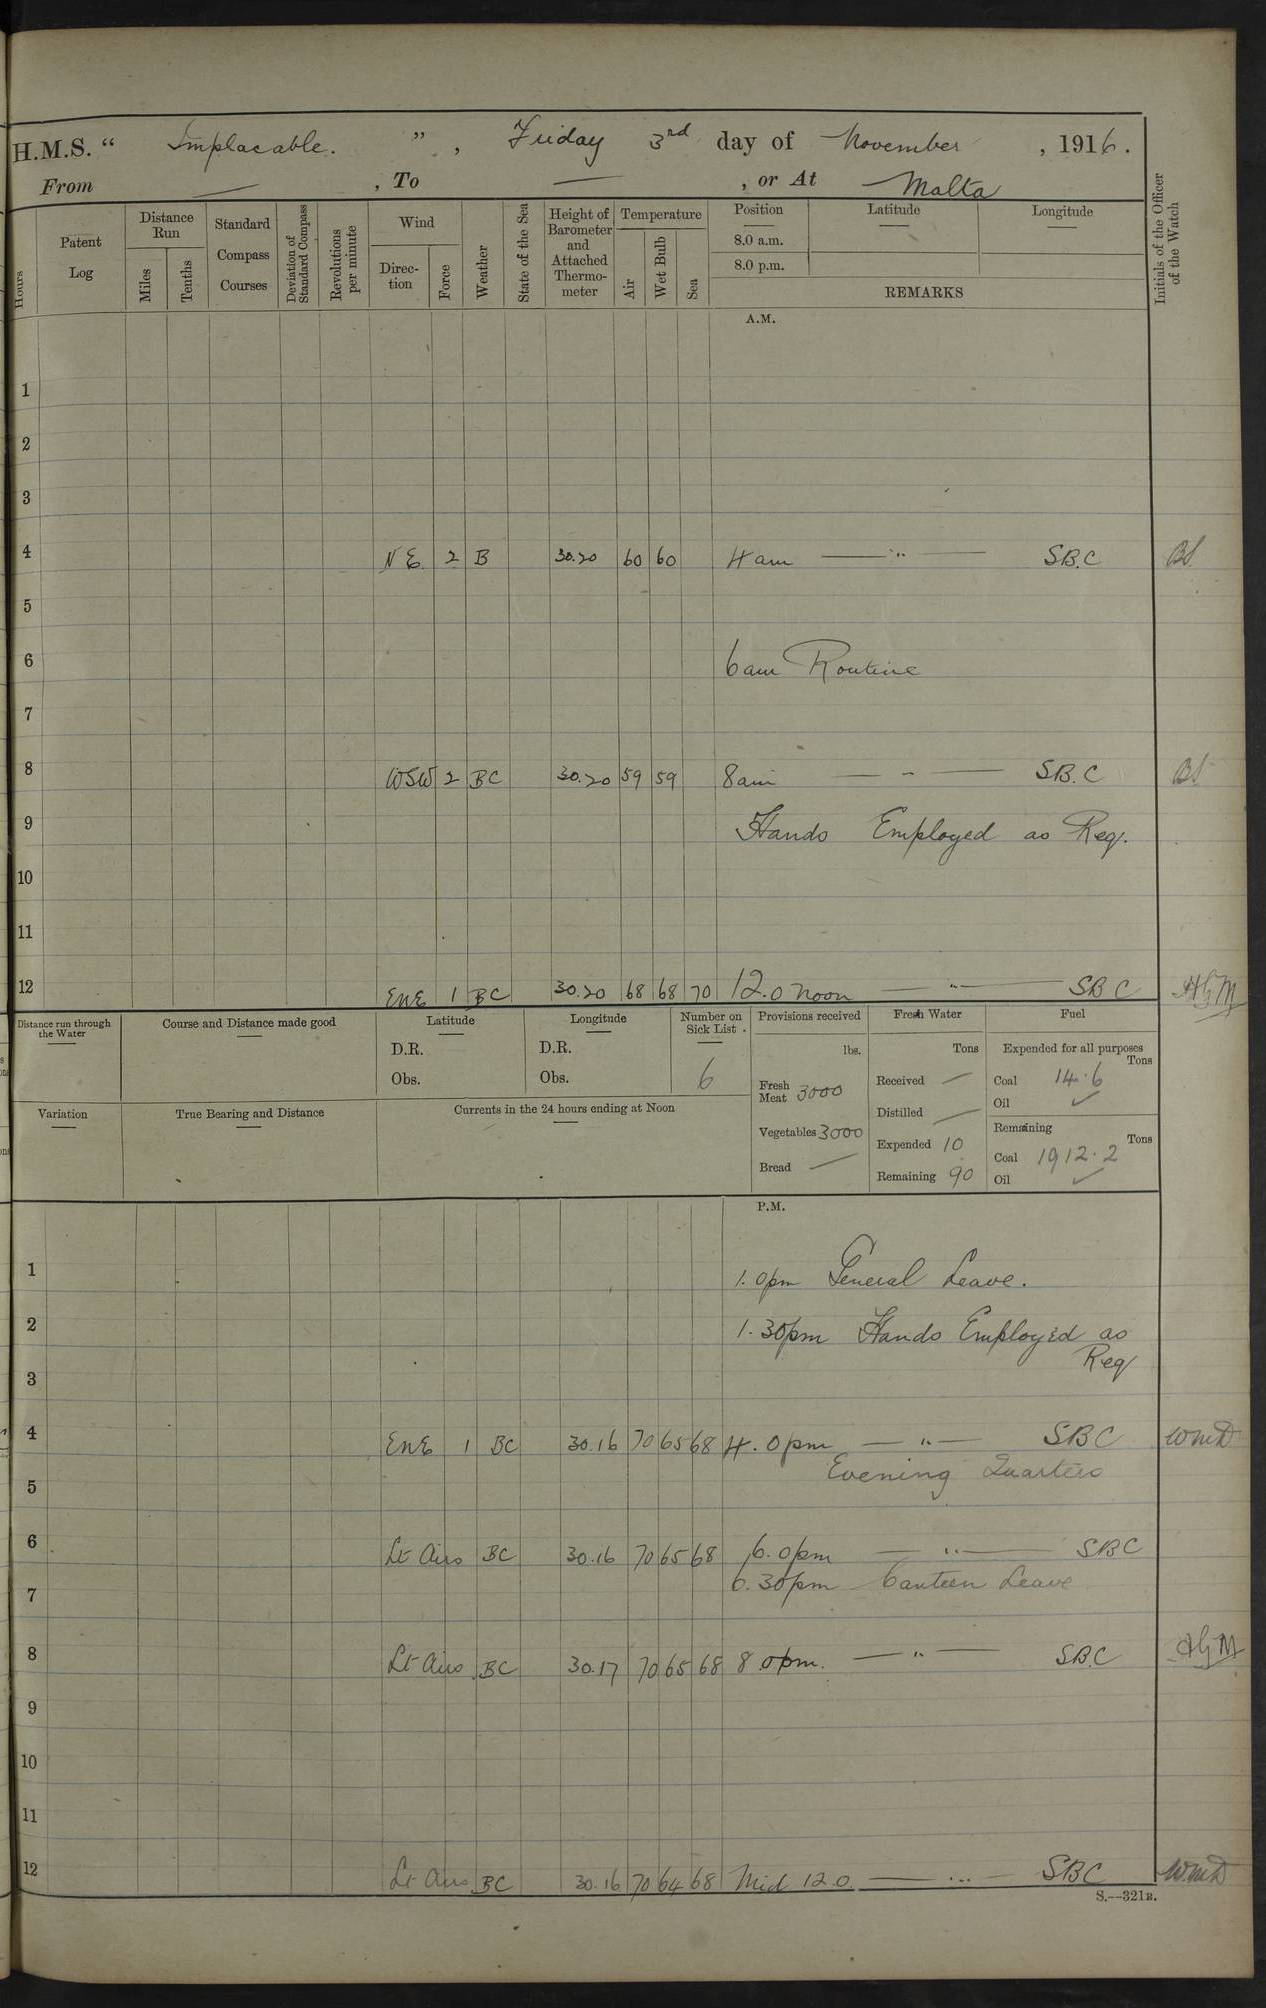 H.M.S. “ Implacable. ” , Friday 3rd day of November , 1916.
From — , To — , or At Malta
Hours
Patent Log
Distance Run
Miles
Tenths
Standard Compass Courses
Deviation of Standard Compass
Revolutions per minute
Wind
Direc-tion
Force
Weather
State of the Sea
Height of Barometer and Attached Thermo-meter
Temperature
Air
Wet Bulb
Sea
Position
8.0 a.m.
8.0 p.m.
Latitude
Longitude
REMARKS
Initials of the Officer of the Watch
A.M.
1
2
3
4 NE 2 B 30.20 60 60 4 am — " — SB.C BS.
5
6 6 am Routine
7
8 WSW 2 BC 30.20 59 59 8 am — " — SB.C BS
9 Hands Employed as Req.
10
11
12 ENE 1 BC 30.20 68 68 70 12.0 noon — " — SBC AGM
Distance run through the Water
Course and Distance made good
Latitude
D.R.
Obs.
Longitude
D.R.
Obs.
Number on Sick List
6
Provisions received
lbs.
Fresh Meat 3000
Vegetables 3000
Bread —
Fresh Water
Tons
Received —
Distilled —
Expended 10
Remaining 90
Fuel
Expended for all purposes
Tons
Coal 14.6
Oil ✓
Remaining
Tons
Coal 1912.2
Oil ✓
Variation
True Bearing and Distance
Currents in the 24 hours ending at Noon
P.M.
1 1.0pm General Leave.
2 1.30pm Hands Employed as
Req
3
4 ENE 1 BC 30.16 70 65 68 4.0pm — " — SBC WMD
Evening Quarters
5
6 Lt Airs BC 30.16 70 65 68 6.0pm — " — SBC
6.30pm Canteen Leave
7
8 Lt Airs BC 30.17 70 65 68 8.0pm. — " — SBC AGM
9
10
11
12 Lt Airs BC 30.16 70 64 68 Mid 12.0. — " — SBC WMD
S.—321B.